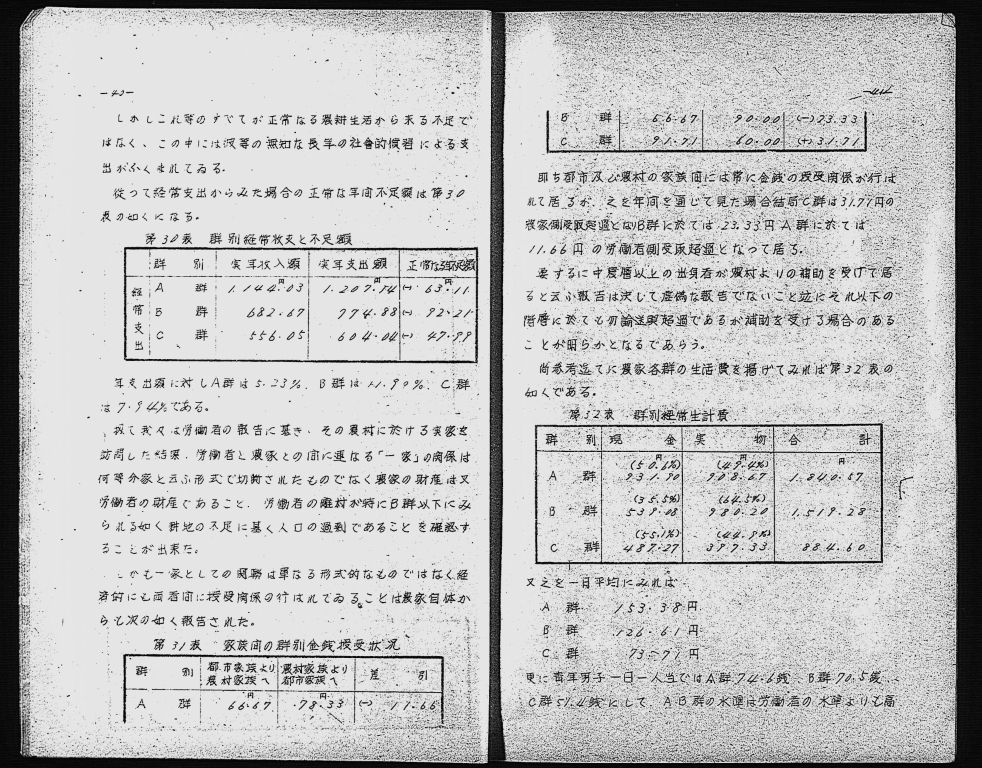 -43-
しかしこれ等のすべてが正常なる農耕生活から来る不足で
はなく、この中には彼等の無知な長年の社会的慣習による支
出がふくまれてゐる。
従つて経常支出からみた場合の正常な年間不足額は第30
表の如くになる。
第30表 群別経常收支と不足額
群 別 実年收入額 実年支出額 正常な年不足額
経常支出
A 群 1.144.03 1.207.14 (-) 63.11
B 群 682.67 774.88 (-) 92.21
C 群 556.05 604.04 (-) 47.99
年支出額に対しA群は5.23%、B群は11.90%、C群
は7.94%である。
扨て我々は労働者の報告に基き、その農村に於ける実家を
訪問した結果、労働者と農家との間に連なる「一家」の関係は
何等分家と云ふ形式で切断されたものでなく農家の財産は又
労働者の財産であること、労働者の離村が特にB群以下にみ
られる如く耕地の不足に基く人口の過剰であることを確認す
ることが出来た。
しかも一家としての関聯は単なる形式的なものではなく経
済的にも両者間に授受関係の行はれてゐることは農家自体か
らも次の如く報告された。
第31表 家族間の群別金銭授受状況
群 別 都市家族より農村家族へ 農村家族より都市家族へ 差 引
A 群 66.67円 78.33円 (-) 11.66
-44-
B 群 66.67 90.00 (-)23.33
C 群 91.71 60.00 (+)31.71
即ち都市及び農村の家族間には常に金銭の授受関係が行は
れて居るが、之を年間を通じて見た場合結局C群は31.71円の
農家側受取超過となりB群に於ては23.33円A群に於ては
11.66円の労働者側受取超過となつて居る。
要するに中農層以上の出身者が農村よりの補助を受けて居
ると云ふ報告は決して虚偽な報告でないこと並にそれ以下の
階層に於ても勿論送金超過であるが補助を受ける場合のある
ことが明らかとなるであらう。
尚参考迄てに農家各群の生活費を掲げてみれば第32表の
如くである。
第32表 群別経常生計費
群 別 現 金 実 物 合 計
A 群 (50.6%) 931.90円 (49.4%) 908.67円 1.840.57円
B 群 (35.5%) 539.08 (64.5%) 980.20 1.519.28
C 群 (55.1%) 487.27 (44.9%) 397.33 884.60
又之を一日平均にみれば
A 群 153.38円
B 群 126.61円
C 群 73.71円
更に青年男子一日一人当ではA群74.6銭、B群70.5銭、
C群51.4銭にして、A B群の水準は労働者の水準よりも高